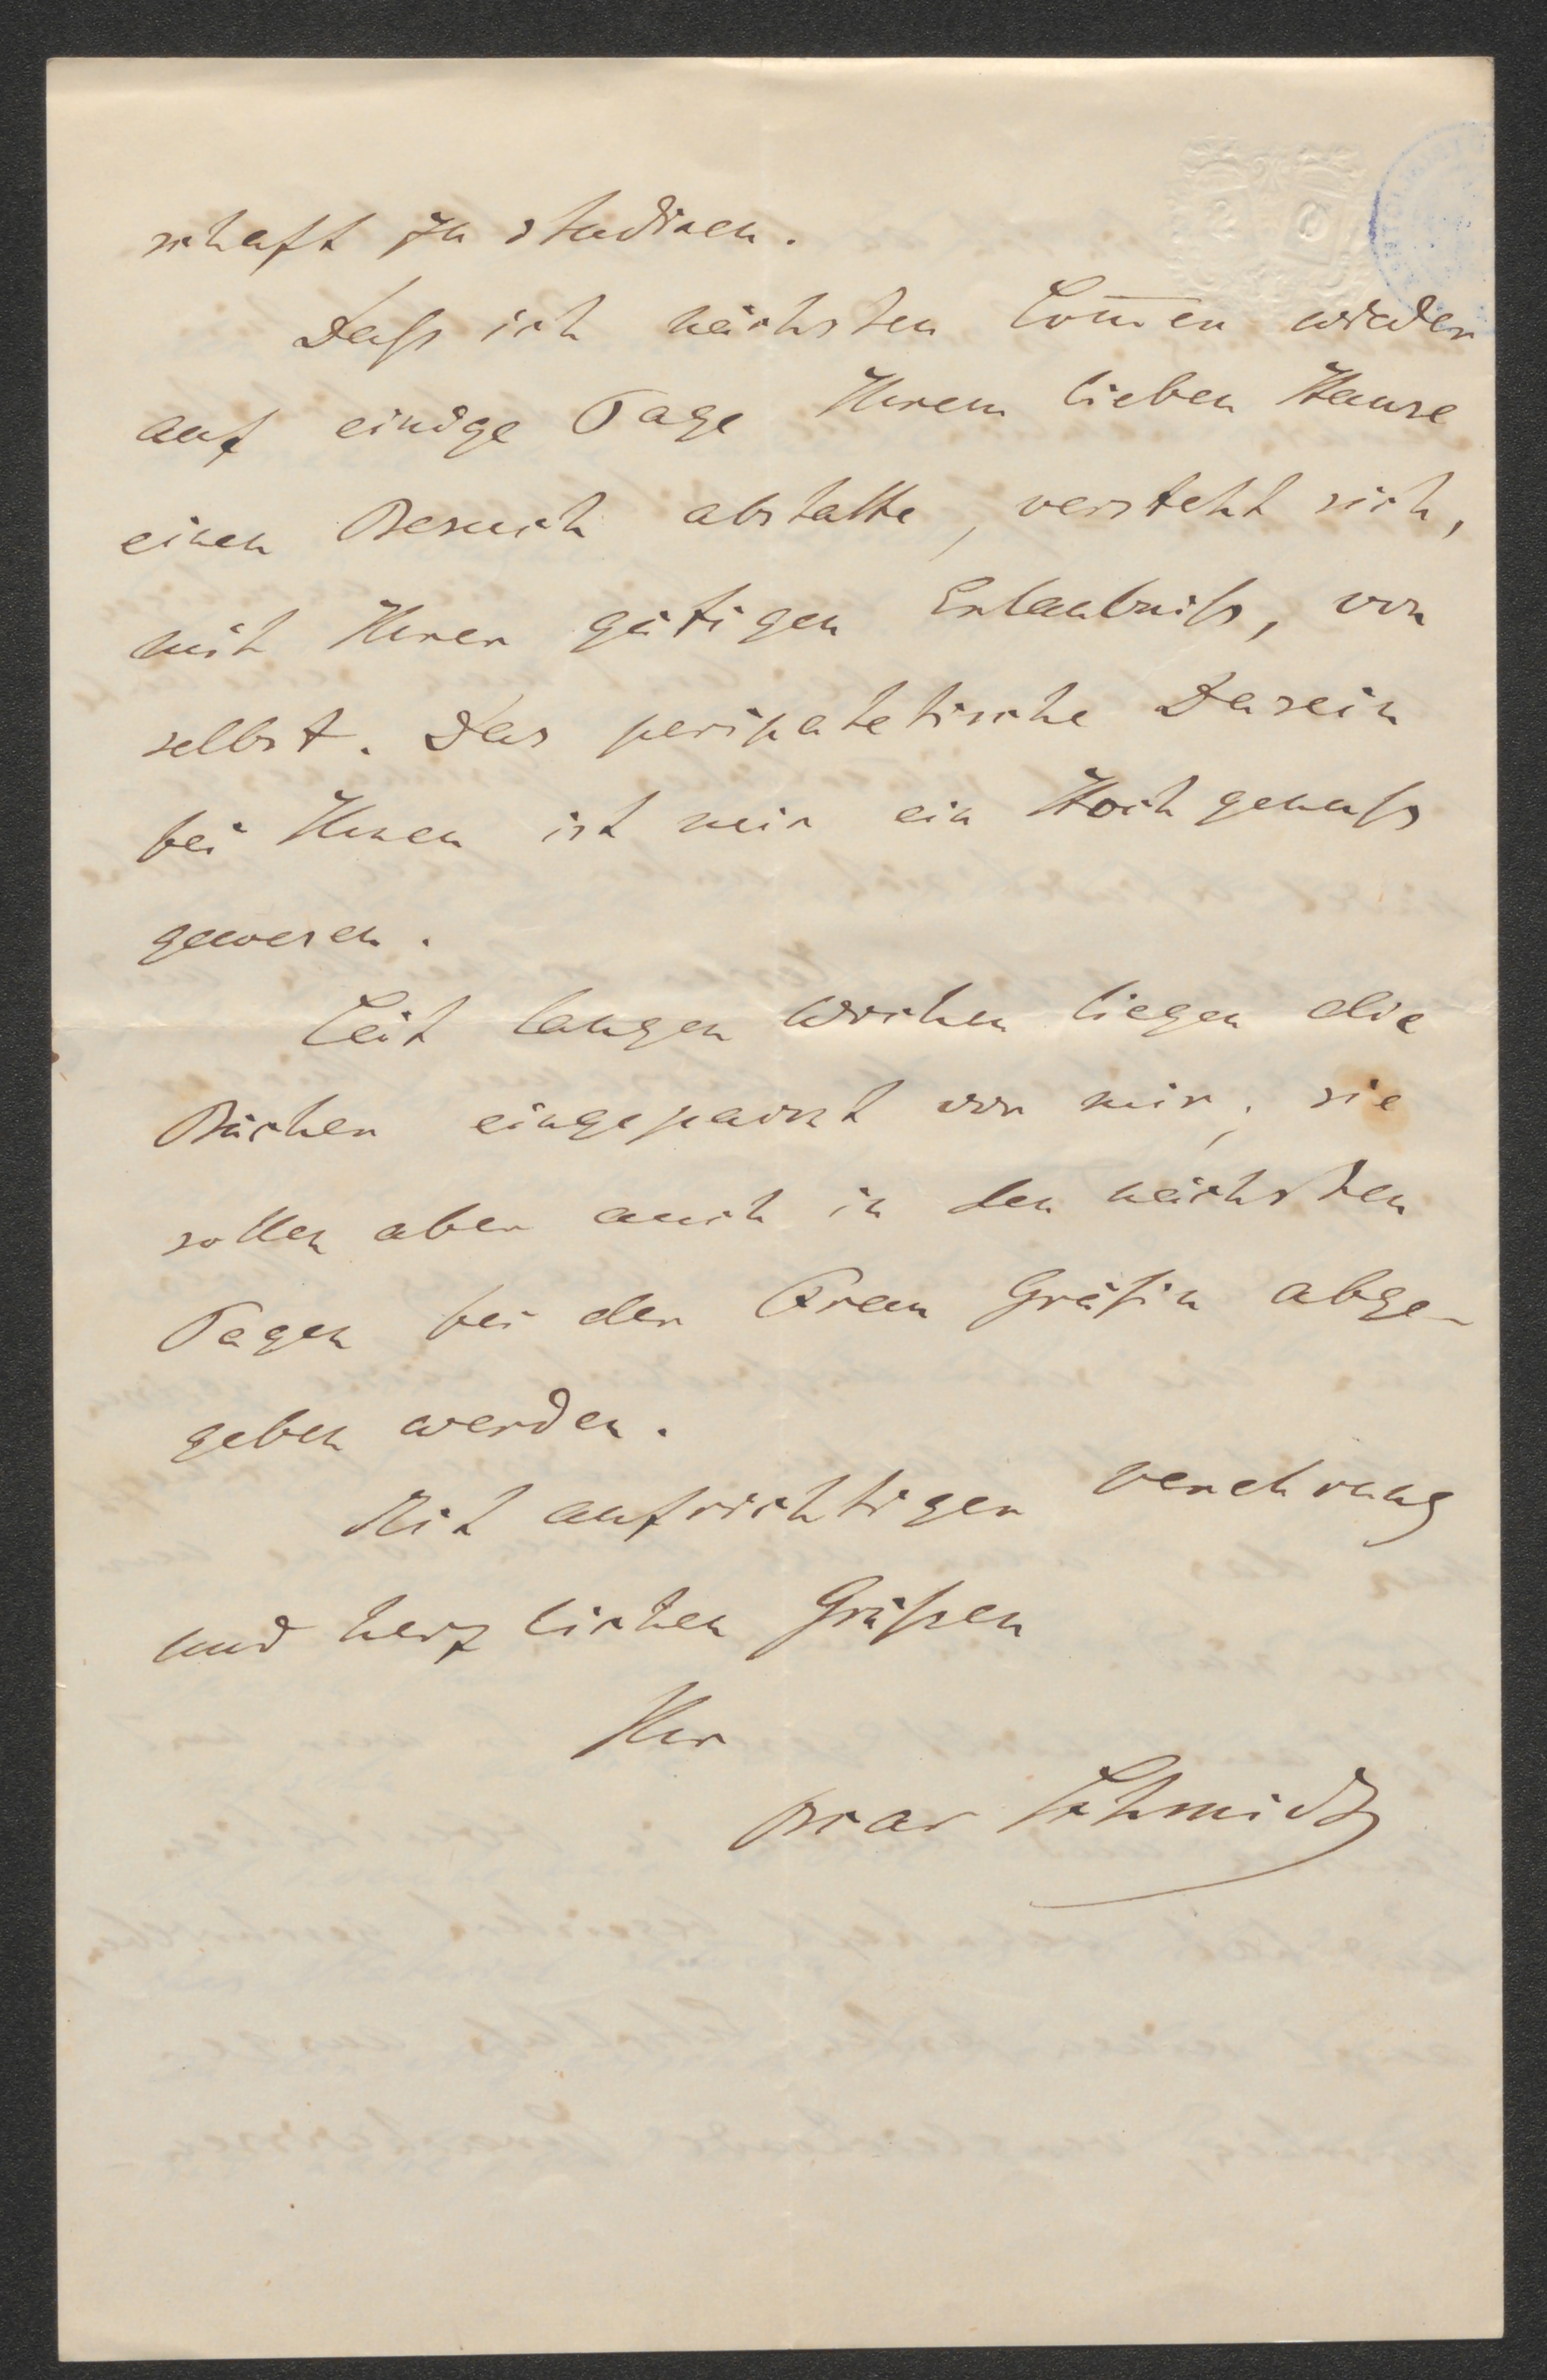 schaft zu studiren.
Daſs ich nächsten Som̅er wieder
auf einige Tage Ihrem lieben Hause
einen Besuch abstatte, versteht sich,
mit Ihrer gütigen Erlaubniſs, von
selbst. Das peripatetische Dasein
bei Ihnen ist mir ein Hochgenuſs
gewesen.
Seit langen Wochen liegen die
Bücher eingepackt vor mir; sie
sollen aber auch in den nächsten
Tagen bei der Frau Gräfin abge-
geben werden.
Mit aufrichtiger Verehrung
und herzlichen Grüſsen
Ihr
Oscar Schmidt